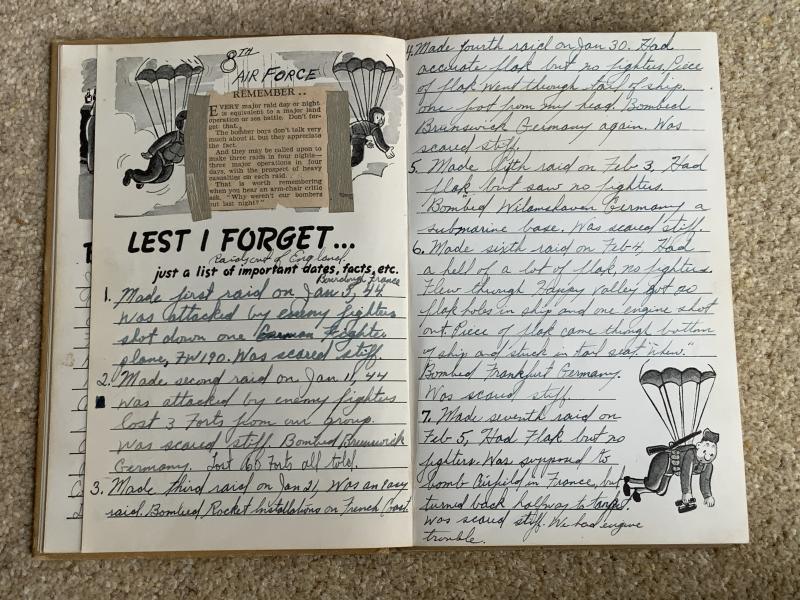 8TH
AIR FORCE
REMEMBER . .
EVERY major raid day or night
is equivalent to a major land
operation or sea battle. Don't for-
get that.
The bomber boys don't talk very
much about it but they appreciate
the fact.
And they may be called upon to
make three raids in four nights—
three major operations in four
days, with the prospect of heavy
casualties on each raid.
That is worth remembering
when you hear an arm-chair critic
ask, "Why weren't our bombers
out last night?"
LEST I FORGET...
Raids out of England.
just a list of important dates, facts, etc.
France
1. Made first raid on Jan 5, 44
Was attacked by enemy fighters
shot down one German Fighter
plane, FW190. Was scared stiff.
2. Made second raid on Jan 11, 44
was attacked by enemy fighters
lost 3 Forts from our group.
Was scared stiff. Bombed Brunswick
Germany. Lost 60 Forts all told.
3. Made third raid on Jan 21, Was an easy
raid. Bombed Rocket Installations on French Coast.
4. Made fourth raid on Jan 30. Had
accurate flak but no fighters. Piece
of flak went through tail of ship.
one foot from my head. Bombed
Brunswick Germany again. Was
scared stiff.
5. Made fifth raid on Feb 3, Had
flak but saw no fighters.
Bombed Wilamshaven Germany a
submarine base. Was scared stiff.
6. Made sixth raid on Feb 4, Had
a hell of a lot of flak, no fighters.
Flew through Valley got no
flak holes in ship and one engine shot
out. Piece of flak came though bottom
of ship and stuck in tail seat. "Whew."
Bombed Frankfurt Germany.
Was scared stiff.
7. Made seventh raid on
Feb 5, Had Flak but no
fighters. Was supposed to
bomb Airfield in France, but
turned back halfway to target.
Was scared stiff. We had engine
trouble.